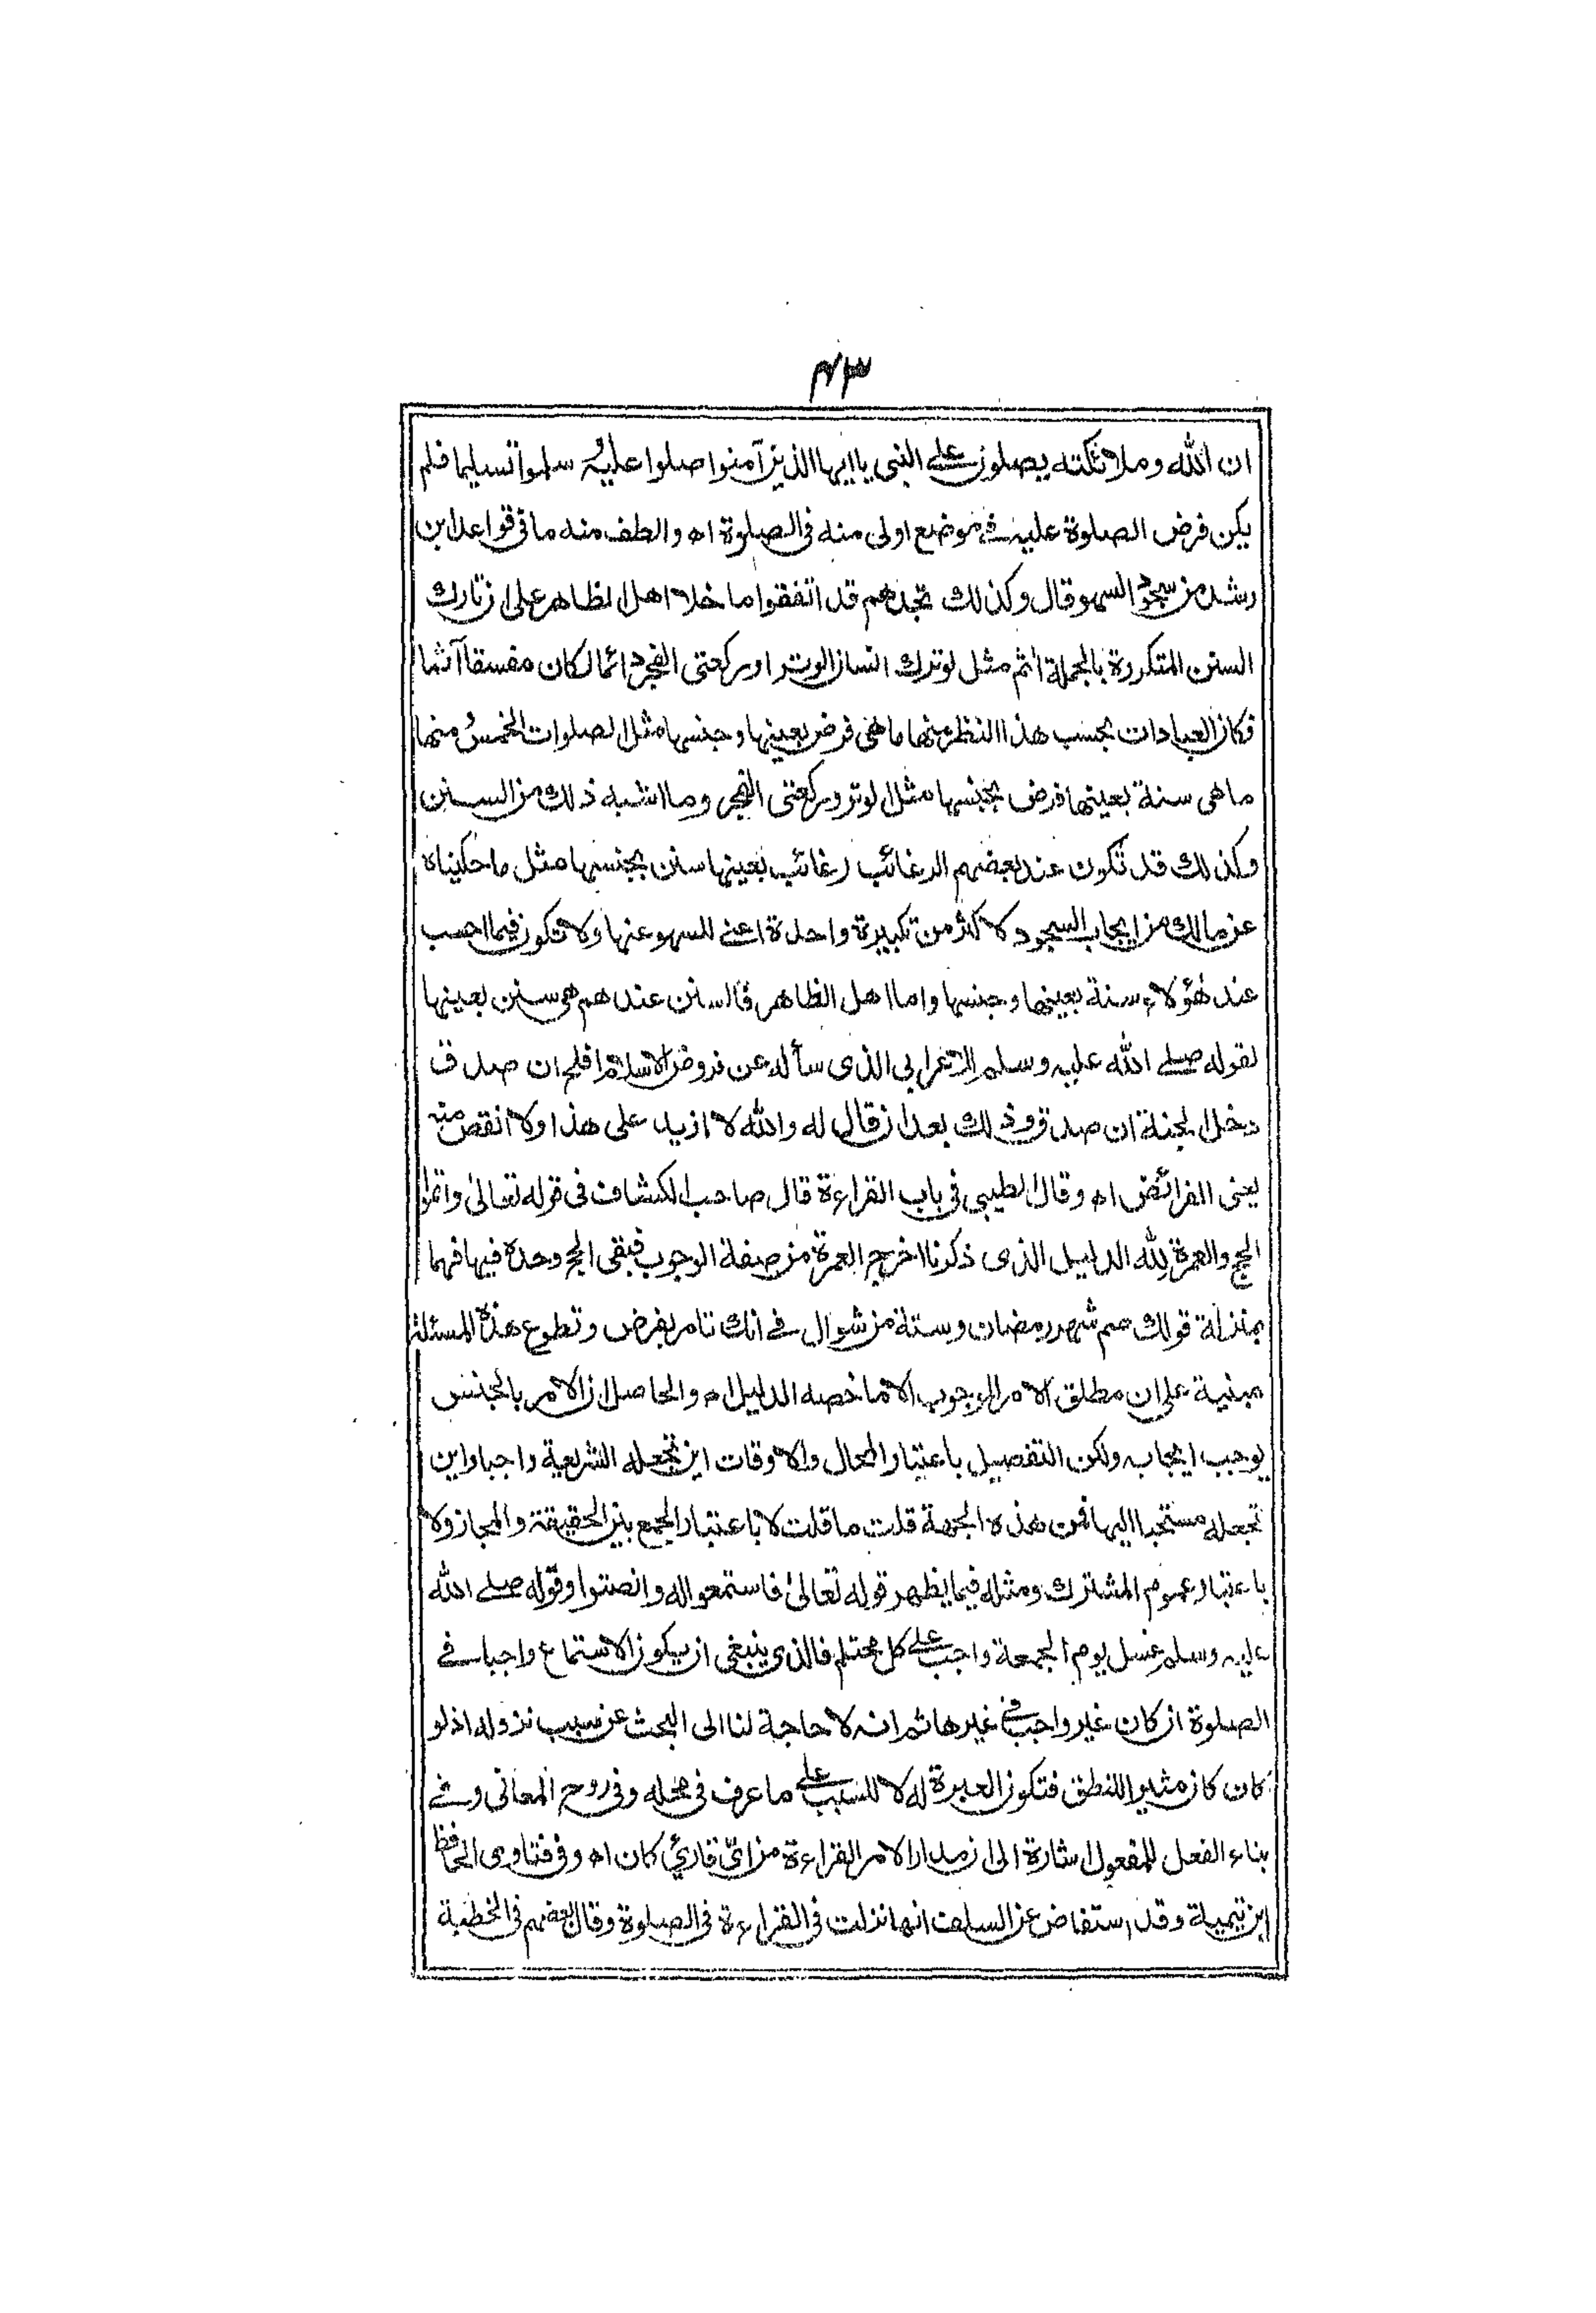 ۴۳
ان الله وملائكته يصلون على النبي يا ايها الذين آمنوا صلوا عليه وسلموا تسليما فلم
يكن فرض الصلوة عليه في موضع اولى منه فى الصلوة اه والطف منه ما فى قواعد ابن
رشد من سجود السهو قال وكذلك تجدهم قد اتفقوا ما خلا اهل الظاهر على ان تارك
السنن المتكررة بالجملة آثم مثل لو ترك انسان الوتر او ركعتى الفجر دائما لكان مفسقا آثما
فكان العبادات بحسب هذا النظر منها ما هى فرض بعينها وجنسها مثل الصلوات الخمس ومنها
ما هى سنة بعينها فرض بجنسها مثل الوتر وركعتى الفجر وما اشبه ذلك من السنن
وكذلك قد تكون عند بعضهم الرغائب رغائب بعينها سنن بجنسها مثل ما حكيناه
عن مالك من ايجاب السجود لاكثر من تكبيرة واحدة اعنى للسهو عنها ولا تكون فيما احسب
عند هؤلاء سنة بعينها وجنسها واما اهل الظاهر فالسنن عندهم هى سنن بعينها
لقوله صلى الله عليه وسلم للاعرابي الذى سأله عن فروض الاسلام افلح ان صدق
دخل الجنة ان صدق وذلك بعد ان قال له والله لا ازيد على هذا ولا انقص منه
يعنى الفرائض اه وقال الطيبي فى باب القراءة قال صاحب الكشاف فى قوله تعالى واتموا
الحج والعمرة لله الدليل الذى ذكرنا اخرج العمرة من صفة الوجوب فبقى الحج وحده فيها فهما
بمنزلة قولك صم شهر رمضان وستة من شوال فى انك تامر بفرض وتطوع هذه المسئلة
مبنية على ان مطلق الامر للوجوب الا ما خصه الدليل اه والحاصل ان الامر بالجنس
يوجب ايجابه ولكن التفصيل باعتبار المحال والاوقات اين تجعله الشريعة واجبا واين
تجعله مستحبا اليها فمن هذه الجهة قلت ما قلت لا باعتبار الجمع بين الحقيقة والمجاز ولا
باعتبار عموم المشترك ومثله فيما يظهر قوله تعالى فاستمعوا له وانصتوا وقوله صلى الله
عليه وسلم غسل يوم الجمعة واجب على كل محتلم فالذى ينبغى ان يكون الاستماع واجبا فى
الصلوة ان كان غير واجب فى غيرها ثم انه لا حاجة لنا الى البحث عن سبب نزوله اذ لو
كان كان مثير اللنطق فتكون العبرة له لا للسبب على ما عرف فى محله وفى روح المعانى وفى
بناء الفعل للمفعول اشارة الى ان مدار الامر القراءة من اىّ قارئ كان اه وفى فتاوى الحافظ
ابن تيمية وقد استفاض عن السلف انها نزلت فى القراءة فى الصلوة وقال بعضهم فى الخطبة